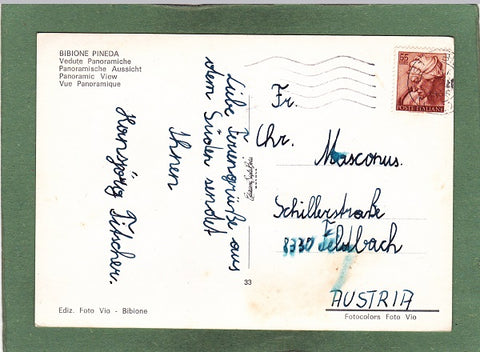 BIBIONE PINEDA
Vedute Panoramiche
Panoramische Aussicht
Panoramic View
Vue Panoramique
Liebe Feriengrüße aus
dem Süden sendet
Ihnen
Hansjörg
Ediz. Foto Vio - Bibione
33
POSTE ITALIANE
Fr.
Chr. Masconus.
Schillerstraße
8330 Feldbach
AUSTRIA
Fotocolors Foto Vio